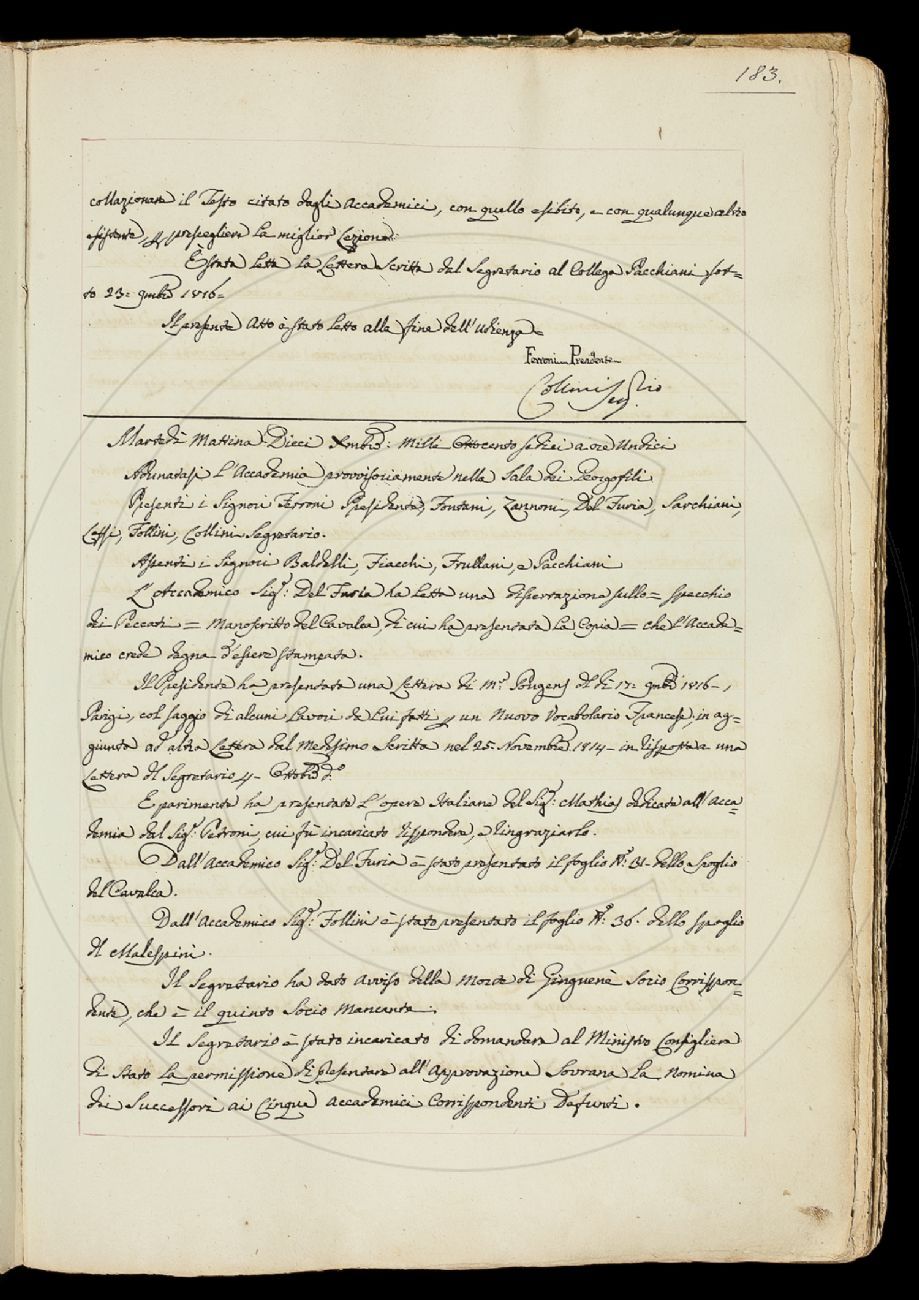 183.
collazionare il Testo citato dagli Accademici, con quello esibito, e con qualunque altro
esistente, per prescegliere la miglior Lezione.
È stata letta la Lettera scritta dal Segretario al Collega Pacchiani sot=
to 23= 9mbre 1816=
Il presente Atto è stato letto alla fine dell'Udienza=
Ferroni Presidente
Collini Segrio
Martedì Mattina Dieci Xmbre: Mille Ottocento sedici a ore Undici
Adunatasi l'Accademia provvisoriamente nella Sala dei Georgofili
Presenti i Signori Ferroni Presidente, Fontani, Zannoni, Del Furia, Sarchiani,
Lessi, Follini, Collini Segretario.
Assenti i Signori Baldelli, Fiacchi, Frullani, e Pacchiani
L'Accademico Sigr: Del Furia ha letta una dissertazione sullo= specchio
dei Peccati= Manoscritto del Cavalca, di cui ha presentata la Copia= che l'Accade=
mico crede degna d'essere stampata.
Il Presidente ha presentata una Lettera di Mr. Pougens del dì 17= 9mbre 1816=,
Parigi, col saggio di alcuni Lavori da Lui fatti per un Nuovo Vocabolario Francese, in ag=
giunta ad altra Lettera del Medesimo scritta nel 25. Novembre 1814= in risposta a una
Lettera del Segretario 4= Ottobre do.
E parimente ha presentate l'opere Italiane del Sigr: Mathias dedicate all'Acca=
demia dal Sigr. Petroni, cui fu incaricato rispondere, e ringraziarlo.
Dall'Accademico Sigr: Del Furia è stato presentato il foglio No: 31= dello Spoglio
del Cavalca.
Dall'Accademico Sigr: Follini è stato presentato il foglio No: 36. dello spoglio
del Malespini.
Il Segretario ha dato avviso della Morte di Ginguené Socio Corrispon=
dente, che è il quinto Socio Mancante.
Il Segretario è stato incaricato di domandare al Ministro Consigliere
di Stato la permissione di presentare all'Approvazione Sovrana la Nomina
dei Successori ai Cinque Accademici Corrispondenti Defunti.